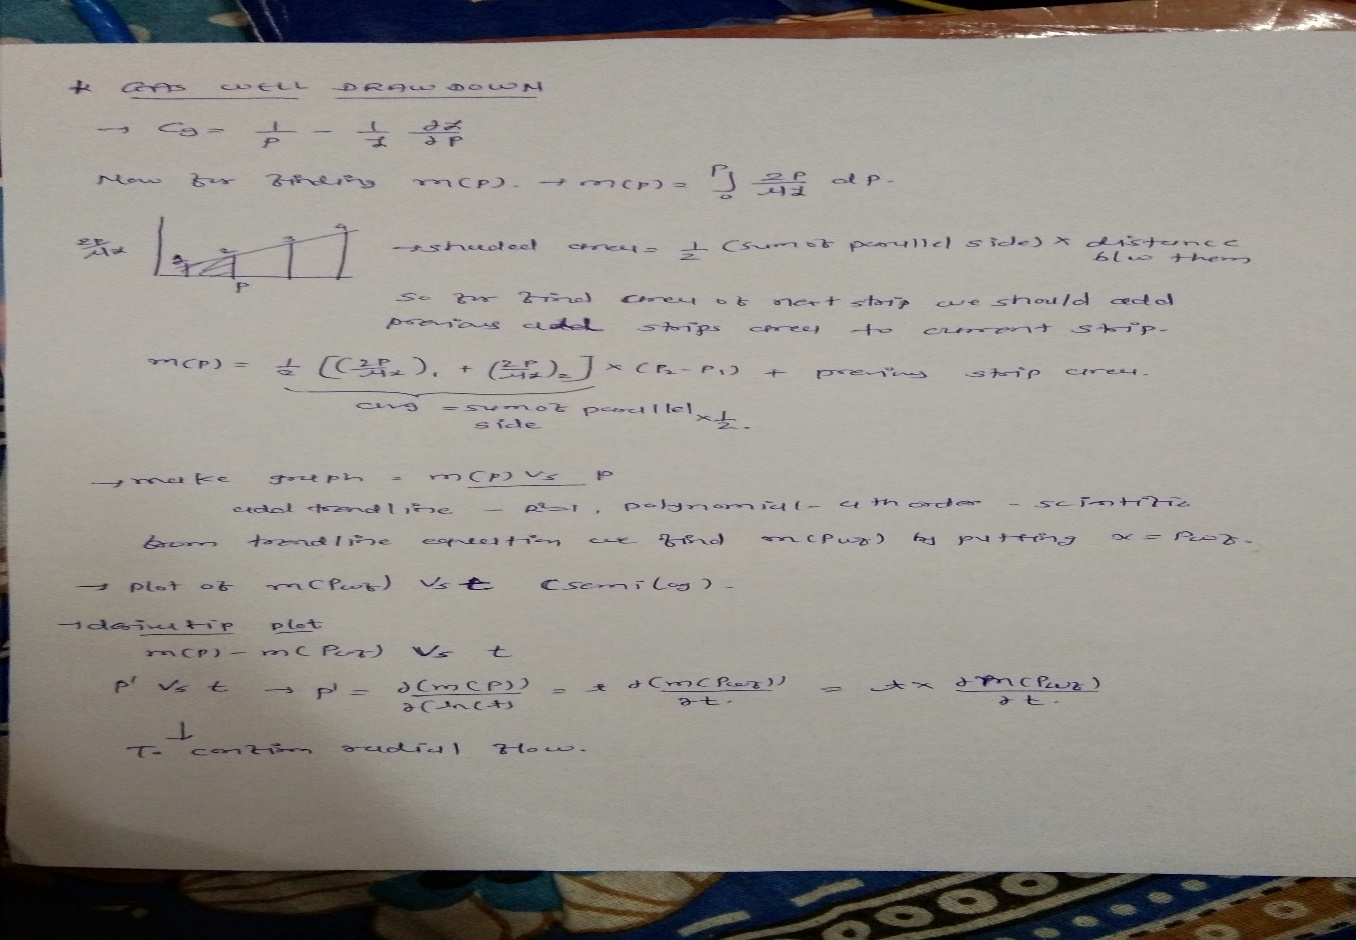 * GAS WELL DRAWDOWN
→ Cg = 1/P - 1/z ∂z/∂P
Now for finding m(p). → m(p) = ∫₀ᴾ 2P/μz dP.
2P/μz
2 3 4
P
→ shaded area = 1/2 (sum of parallel sides) x distance b/w them
So for find area of next strip we should add
previous add strips area to current strip.
m(p) = 1/2 [(2P/μz)₁ + (2P/μz)₂] x (P₂-P₁) + previous strip area.
avg = sum of parallel side x 1/2.
→ make graph = m(p) vs P
add trendline - R²=1, polynomial - 4th order - scintific
from trendline equation we find m(Pwf) by putting x = Pwf.
→ plot of m(Pwf) vs t (semilog).
→ derivetip plot
m(p) - m(Pwf) vs t
P' vs t → P' = ∂(m(p))/∂(ln(t) = t ∂(m(Pwf))/∂t. = t x ∂m(Pwf)/∂t.
↓
To confirm radial flow.